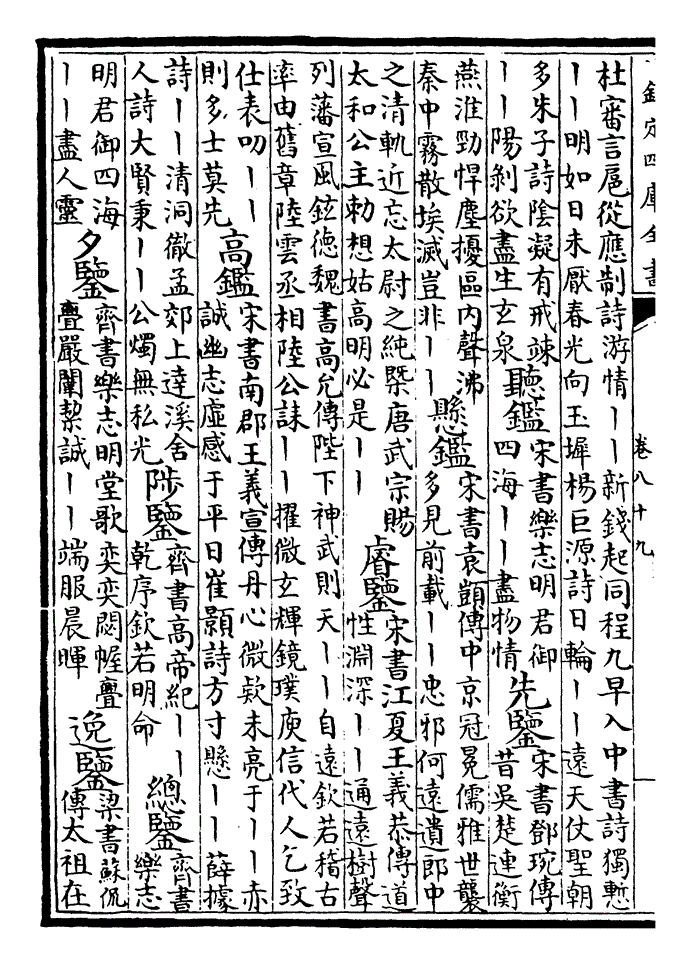 欽定四庫全書
卷八十九
杜審言扈從應制詩游情丨丨新錢起同程九早入中書詩獨慙
丨丨明如日未厭春光向玉墀楊巨源詩日輪丨丨遠天仗聖朝
多朱子詩陰凝有戒竦
丨丨陽剝欲盡生玄泉
聽鑑
宋書樂志明君御
四海丨丨盡物情
先鑒
宋書鄧琬傳
昔吳楚連衡
燕淮勁悍塵擾區内聲沸
秦中霧散埃滅豈非丨丨
懸鑑
宋書袁顗傳中京冠冕儒雅世襲
多見前載丨丨忠邪何遠遺郎中
之清軌近忘太尉之純槩唐武宗賜
太和公主勅想姑高明必是丨丨
睿鑒
宋書江夏王義恭傳道
性淵深丨丨通遠樹聲
列藩宣風鉉德魏書高允傳陛下神武則天丨丨自遠欽若稽古
率由舊章陸雲丞相陸公誄丨丨擢微玄輝鏡璞庾信代人乞致
仕表叨丨丨
則多士莫先
高鑑
宋書南郡王義宣傳丹心微款未亮于丨丨赤
誠幽志虛感于平日崔顥詩方寸懸丨丨薛據
詩丨丨清洞徹孟郊上達溪舍
人詩大賢秉丨丨公燭無私光
陟鑒
齊書高帝紀丨丨
乾序欽若明命
總鑒
齊書
樂志
明君御四海
丨丨盡人靈
夕鑒
齊書樂志明堂歌奕奕閟幄亹
亹嚴闈潔誠丨丨端服晨暉
逸鑒
梁書蘇侃
傳太祖在